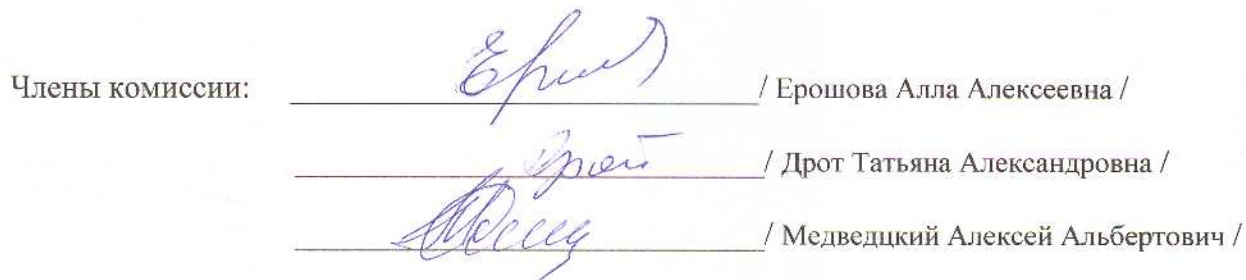 Члены комиссии: / Ерошова Алла Алексеевна /
/ Дрот Татьяна Александровна /
/ Медведцкий Алексей Альбертович /